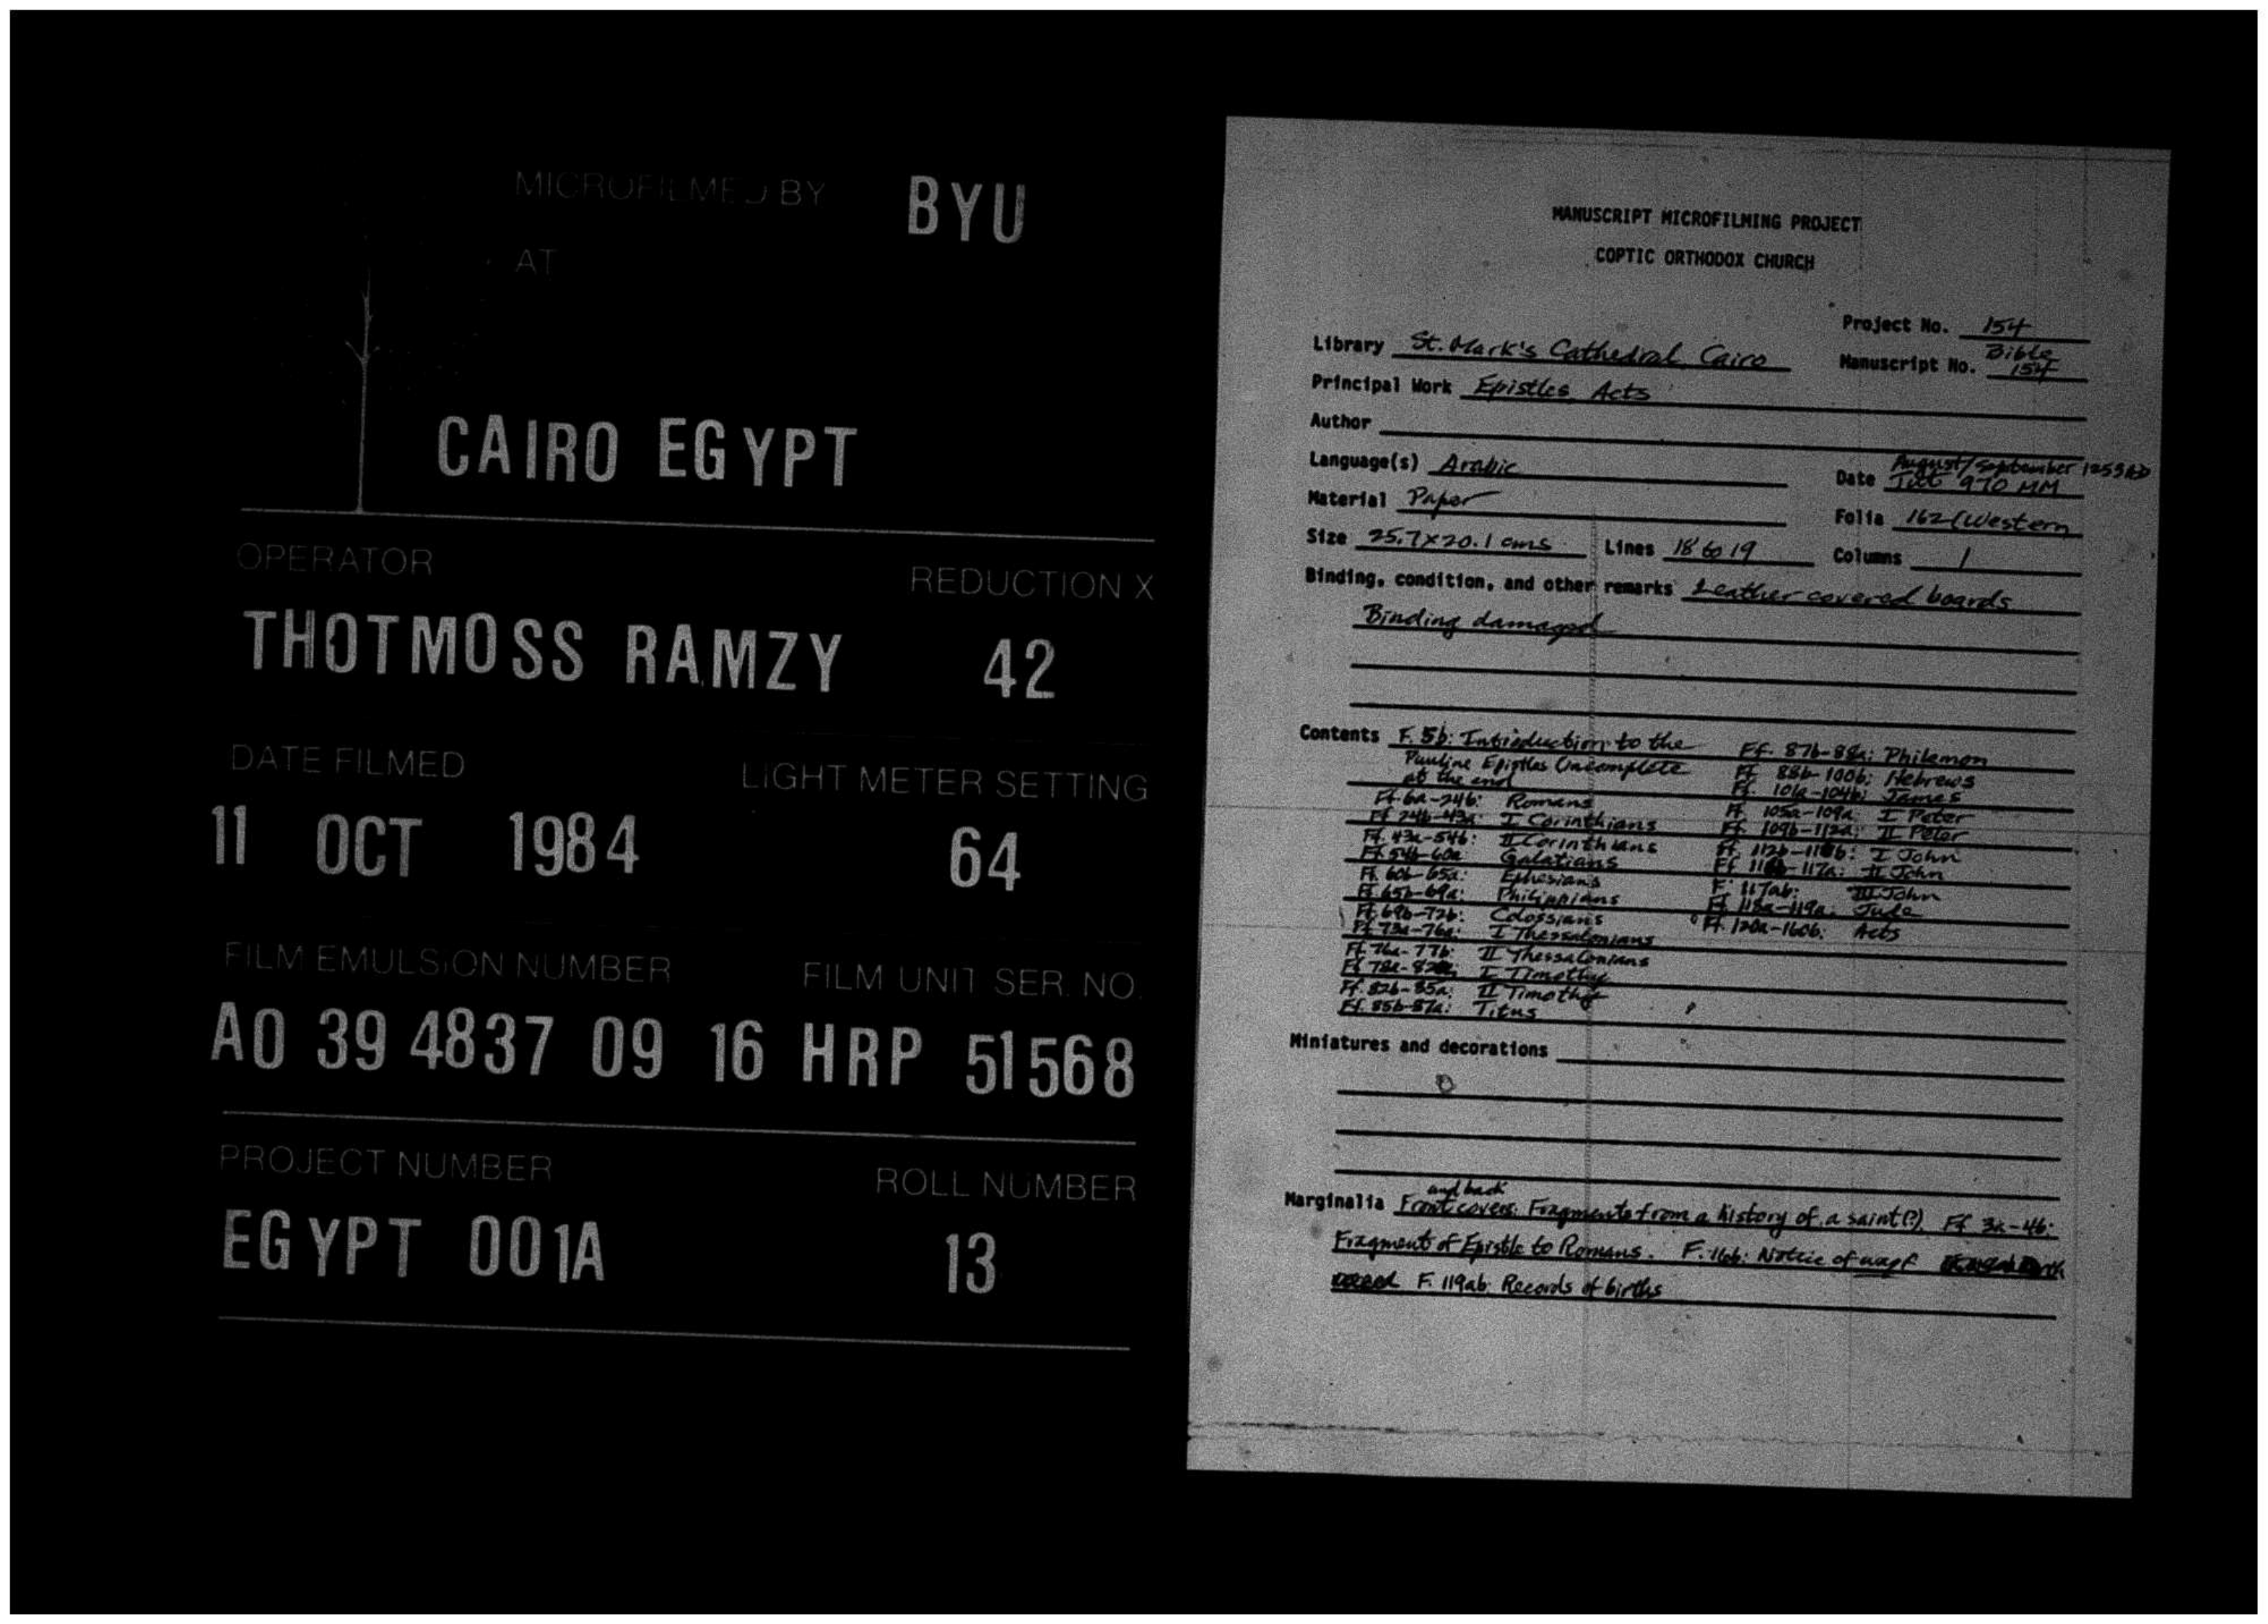 MICROFILMED BY BYU
AT
CAIRO EGYPT
OPERATOR REDUCTION X
THOTMOSS RAMZY 42
DATE FILMED LIGHT METER SETTING
11 OCT 1984 64
FILM EMULSION NUMBER FILM UNIT SER. NO.
A0 39 4837 09 16 HRP 51568
PROJECT NUMBER ROLL NUMBER
EGYPT 001A 13
MANUSCRIPT MICROFILMING PROJECT
COPTIC ORTHODOX CHURCH
Project No. 154
Library St. Mark's Cathedral, Cairo Manuscript No. Bible 154
Principal Work Epistles, Acts
Author
Language(s) Arabic Date August/September 1253 AD
Tut 970 MM
Material Paper Folia 162 (Western
Size 25.7 x 20.1 cms. Lines 18 to 19 Columns 1
Binding, condition, and other remarks Leather covered boards
Binding damaged
Contents F. 5b: Introduction to the
Pauline Epistles (incomplete
at the end
Ff. 6a-24b: Romans
Ff. 24b-43a: I Corinthians
Ff. 43a-54b: II Corinthians
Ff. 54b-60a: Galatians
Ff. 60b-65a: Ephesians
Ff. 65b-69a: Philippians
Ff. 69b-72b: Colossians
Ff. 73a-76a: I Thessalonians
Ff. 76a-77b: II Thessalonians
Ff. 78a- I Timothy
Ff. 82b-85a: II Timothy
Ff. 85b-87a: Titus
Ff. 87b-88a: Philemon
Ff. 88b-100b: Hebrews
Ff. 101a-104b: James
Ff. 105a-109a: I Peter
Ff. 109b-112a: II Peter
Ff. 112b- I John
Ff. -117a: II John
F. 117ab: III John
Ff. 118a-119a: Jude
Ff. 120a-160b: Acts
Miniatures and decorations
Marginalia Front and back covers: Fragments from a history of a saint(?). Ff. 3a-4b:
Fragment of Epistle to Romans. F. 16b: Notice of waqf
F. 119ab: Records of births